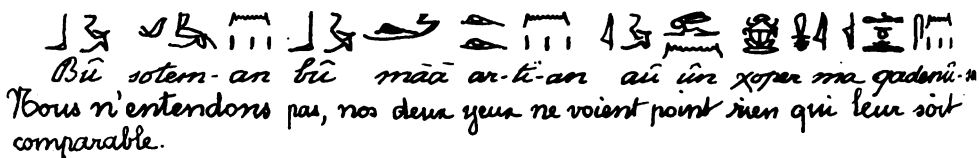 Bû sotem-an bû mââ ar-ti-an aû ûn xoper ma qadenû-sn
Nous n'entendons pas, nos deux yeux ne voient point rien qui leur soit
comparable.